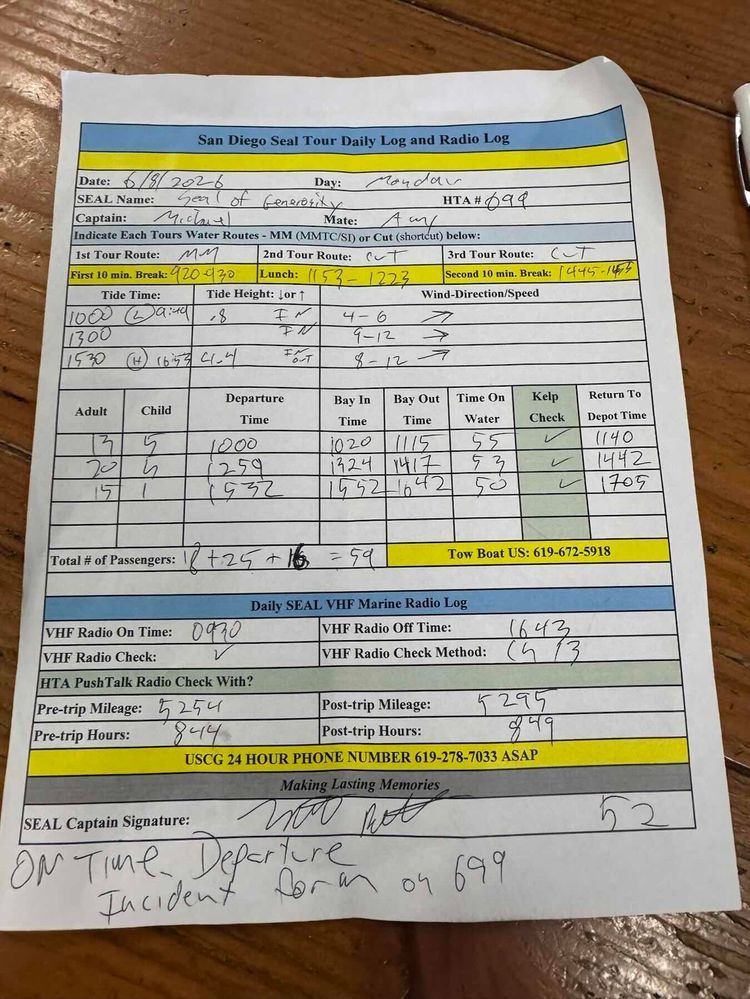 San Diego Seal Tour Daily Log and Radio Log
Date: 6/8/2026 Day: Monday
SEAL Name: Seal of Generosity HTA # 699
Captain: Michael Mate: Amy
Indicate Each Tours Water Routes - MM (MMTC/SI) or Cut (shortcut) below:
1st Tour Route: MM 2nd Tour Route: CUT 3rd Tour Route: CUT
First 10 min. Break: 920-930 Lunch: 1153-1223 Second 10 min. Break: 1445-1453
Tide Time: Tide Height: ↓or↑ Wind-Direction/Speed
1000 (L) 9:49 .8 IN 4-6 →
1300 IN 9-12 →
1530 (H) 16:53 4.4 IN OUT 8-12 →
Adult Child Departure Time Bay In Time Bay Out Time Time On Water Kelp Check Return To Depot Time
13 5 1000 1020 1115 55 ✓ 1140
20 5 1259 1324 1417 53 ✓ 1442
15 1 1532 1552 1642 50 ✓ 1705
Total # of Passengers: 18+25+16 = 59 Tow Boat US: 619-672-5918
Daily SEAL VHF Marine Radio Log
VHF Radio On Time: 0930 VHF Radio Off Time: 1643
VHF Radio Check: ✓ VHF Radio Check Method: Ch 13
HTA PushTalk Radio Check With?
Pre-trip Mileage: 5254 Post-trip Mileage: 5295
Pre-trip Hours: 844 Post-trip Hours: 849
USCG 24 HOUR PHONE NUMBER 619-278-7033 ASAP
Making Lasting Memories
SEAL Captain Signature: 52
ON Time Departure
Incident form on 699